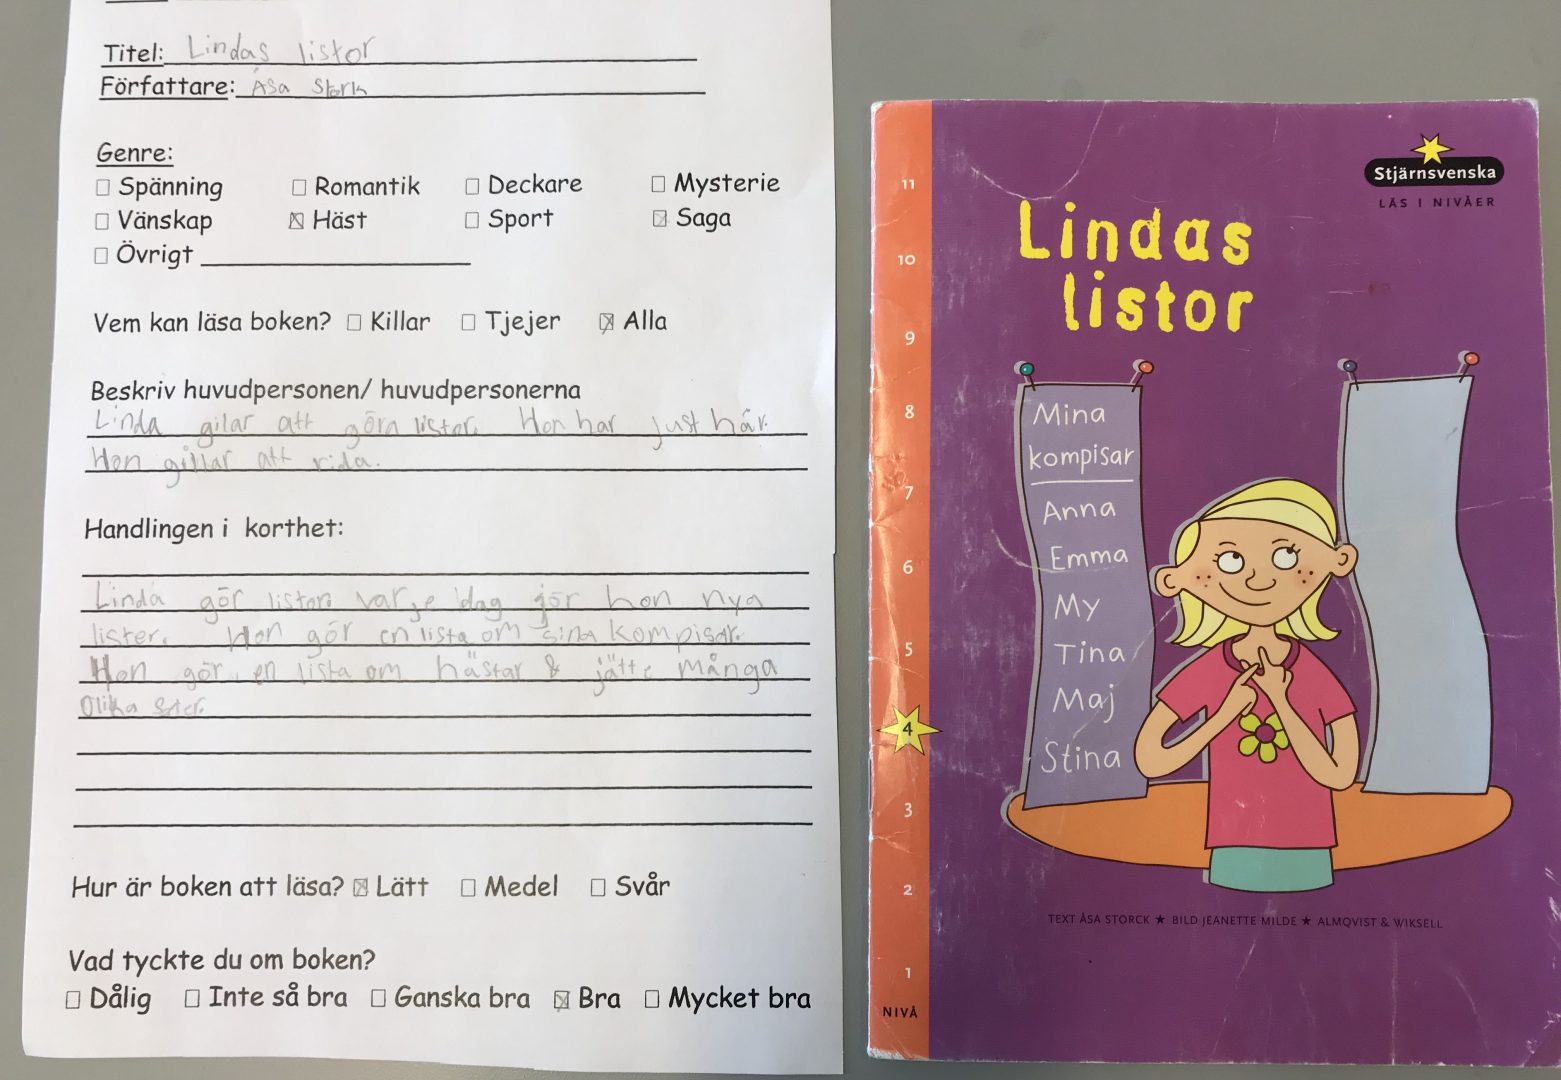 Titel: Lindas listor
Författare: Åsa Stork
Genre:
Spänning Romantik Deckare Mysterie
Vänskap Häst Sport Saga
Övrigt
Vem kan läsa boken? Killar Tjejer Alla
Beskriv huvudpersonen/ huvudpersonerna
Linda gilar att göra listor. Hon har just hår.
Hon gillar att rida.
Handlingen i korthet:
Linda gör listor. varje dag gör hon nya
lister. Hon gör en lista om sina kompisar.
Hon gör en lista om hästar & jätte många
Olika
Hur är boken att läsa? Lätt Medel Svår
Vad tyckte du om boken?
Dålig Inte så bra Ganska bra Bra Mycket bra
Stjärnsvenska
LÄS I NIVÅER
Lindas
listor
Mina
kompisar
Anna
Emma
My
Tina
Maj
Stina
TEXT ÅSA STORCK ★ BILD JEANETTE MILDE ★ ALMQVIST & WIKSELL
11
10
9
8
7
6
5
4
3
2
1
NIVÅ